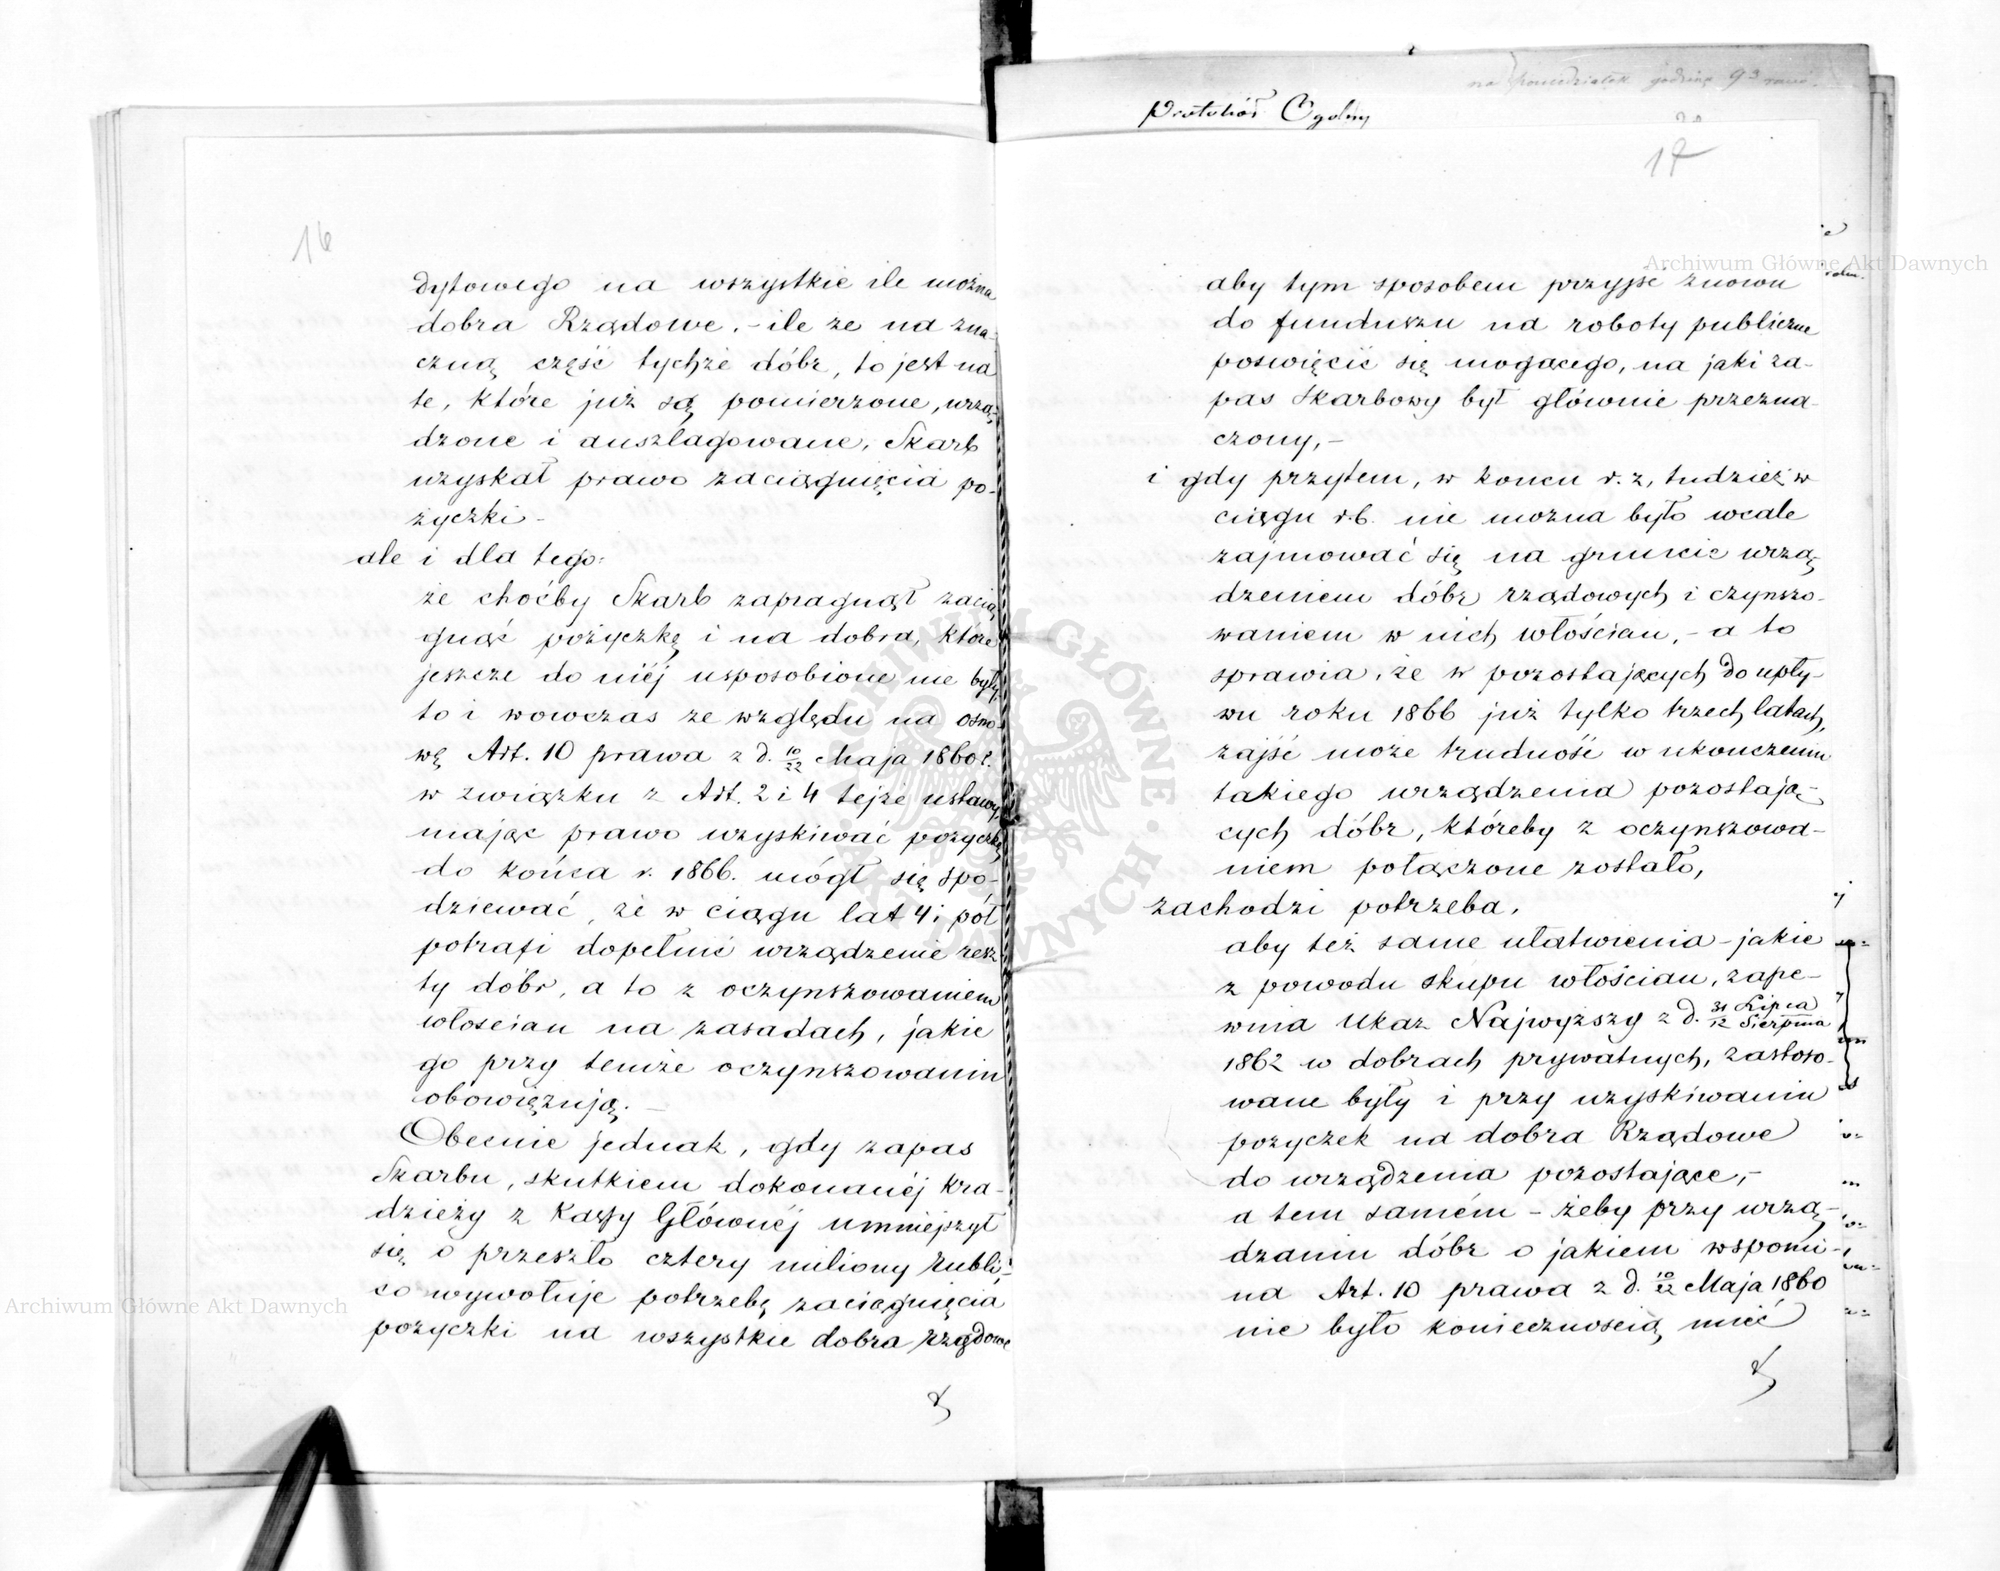 16
dytowego na wszystkie ile można
dobra Rządowe, – ile że na zna-
czną część tychże dóbr, to jest na
te, które już są pomierzone, urzą-
dzone i anszlagowane, Skarb
uzyskał prawo zaciągnięcia po-
życzki –
ale i dla tego:
że choćby Skarb zapragnął zacią
gnąć pożyczkę i na dobra, które
jeszcze do niéj usposobione nie były
to i wowczas ze względu na osno-
wę Art. 10 prawa z d. 10/22 Maja 1860 r.
w związku z Art. 2 i 4 tejże ustawy
mając prawo uzyskiwać pożyczkę
do końca r. 1866. mógł się spo-
dziewać, że w ciągu lat 4 i pół
potrafi dopełnić urządzenie resz
ty dóbr, a to z oczynszowaniem
włościan na zasadach, jakie
go przy temże oczynszowaniu
obowięzują. –
Obecnie jednak, gdy zapas
Skarbu, skutkiem dokonanéj kra-
dzieży z Kassy Głównéj umniejszył
się o przeszło cztery miliony rubli,
co wywołuje potrzebę zaciągnięcia
pożyczki na wszystkie dobra rządowe
na poniedziałek godzinę 9
Protokół Ogólny
17
aby tym sposobem przyjść znowu
do funduszu na roboty publiczne
poswięcić się mogącego, na jaki za-
pas Skarbowy był głównie przezna-
czony, –
i gdy przytem, w koncu r. z, tudzież w
ciągu r. b. nie można było wcale
zajmować się na gruncie urzą
dzeniem dóbr rządowych i czynszo-
waniem w nich włościan, – a to
sprawia, że w pozostających do upły-
wu roku 1866 już tylko trzech latach,
zajść może trudność w ukończeniu
takiego urządzenia pozostają-
cych dóbr, któreby z oczynszowa-
niem połączone zostało,
zachodzi potrzeba,
aby też same ułatwienia – jakie
z powodu skupu włościan, zape-
wnia Ukaz Najwyższy z d. 31 Lipca/12 Sierpnia
1862 w dobrach prywatnych, zastoso-
wane były i przy uzyskiwaniu
pożyczek na dobra Rządowe
do urządzenia pozostające, –
a tem samém – żeby przy urzą-
dzaniu dóbr o jakiem wspomi-
na Art. 10 prawa z d. 10/22 Maja 1860
nie było koniecznoscią mieć
Archiwum Główne Akt Dawnych
Archiwum Główne Akt Dawnych
ARCHIWUM GŁÓWNE AKT DAWNYCH